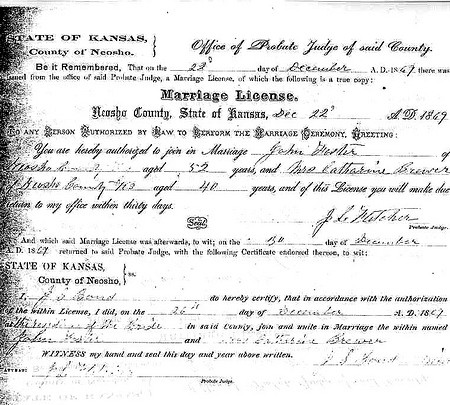 STATE OF KANSAS,
County of Neosho. ss. Office of Probate Judge of said County.
Be it Remembered, That on the 22d day of December A. D. 1869 there was
issued from the office of said Probate Judge, a Marriage License, of which the following is a true copy:
Marriage License.
Neosho County, State of Kansas, Dec 22d A.D. 1869
TO ANY PERSON AUTHORIZED BY LAW TO PERFORM THE MARRIAGE CEREMONY, GREETING:
You are hereby authorized to join in Marriage John of
Neosho County aged 52 years, and Mrs Catharine Brewer
of Neosho County Ks aged 40 years, and of this License you will make due
return to my office within thirty days.
Seal J L Fletcher
Probate Judge.
And which said Marriage License was afterwards, to wit; on the 30 day of December
A. D. 1869 returned to said Probate Judge, with the following Certificate endorsed thereon, to wit:
STATE OF KANSAS,
County of Neosho. ss.
I, J S do hereby certify, that in accordance with the authorization
of the within License, I did, on the 26th day of December A. D. 1869
at the residence of the Bride in said county, join and unite in Marriage the within named
John and Mrs Catharine Brewer
WITNESS my hand and seal this day and year above written. J S
ATTEST:
Probate Judge.